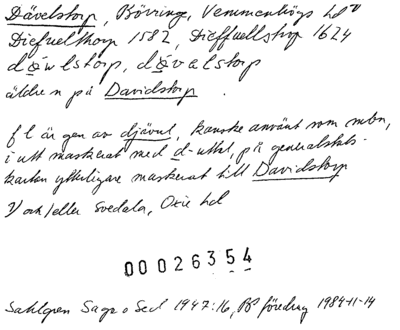 Dävelstorp, Börringe, Vemmenhögs hd 1)
Diefuelthorp 1582, Dieffuellstrup 1624
döwlstorp, dövalstorp
äldre n på Davidstorp .
f l är gen av djävul, kanske använt som mbn,
i utt maskerat med d-uttal, på generalstabs-
kartan ytterligare maskerat till Davidstorp
1) och/eller Svedala, Oxie hd
00026354
Sahlgren Saga o Sed 1947:16, föredrag 1984-11-14